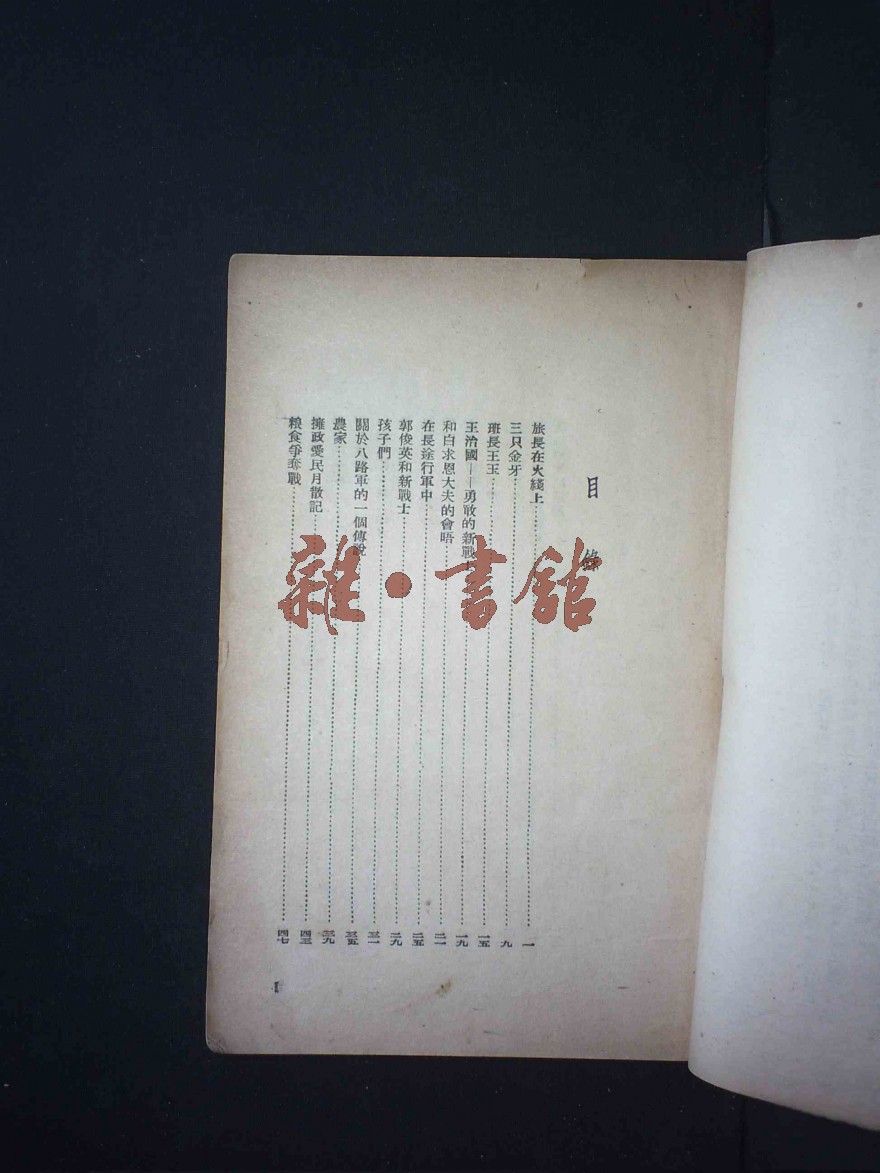 目錄
旅長在火綫上 一
三只金牙 九
班長王玉 一五
王治國——勇敢的新戰士 一九
和白求恩大夫的會晤 二一
在長途行軍中 二五
郭俊英和新戰士 二九
孩子們 三一
關於八路軍的一個傳說 三五
農家 三九
擁政愛民月散記 四三
粮食爭奪戰 四七
I
雜·書館